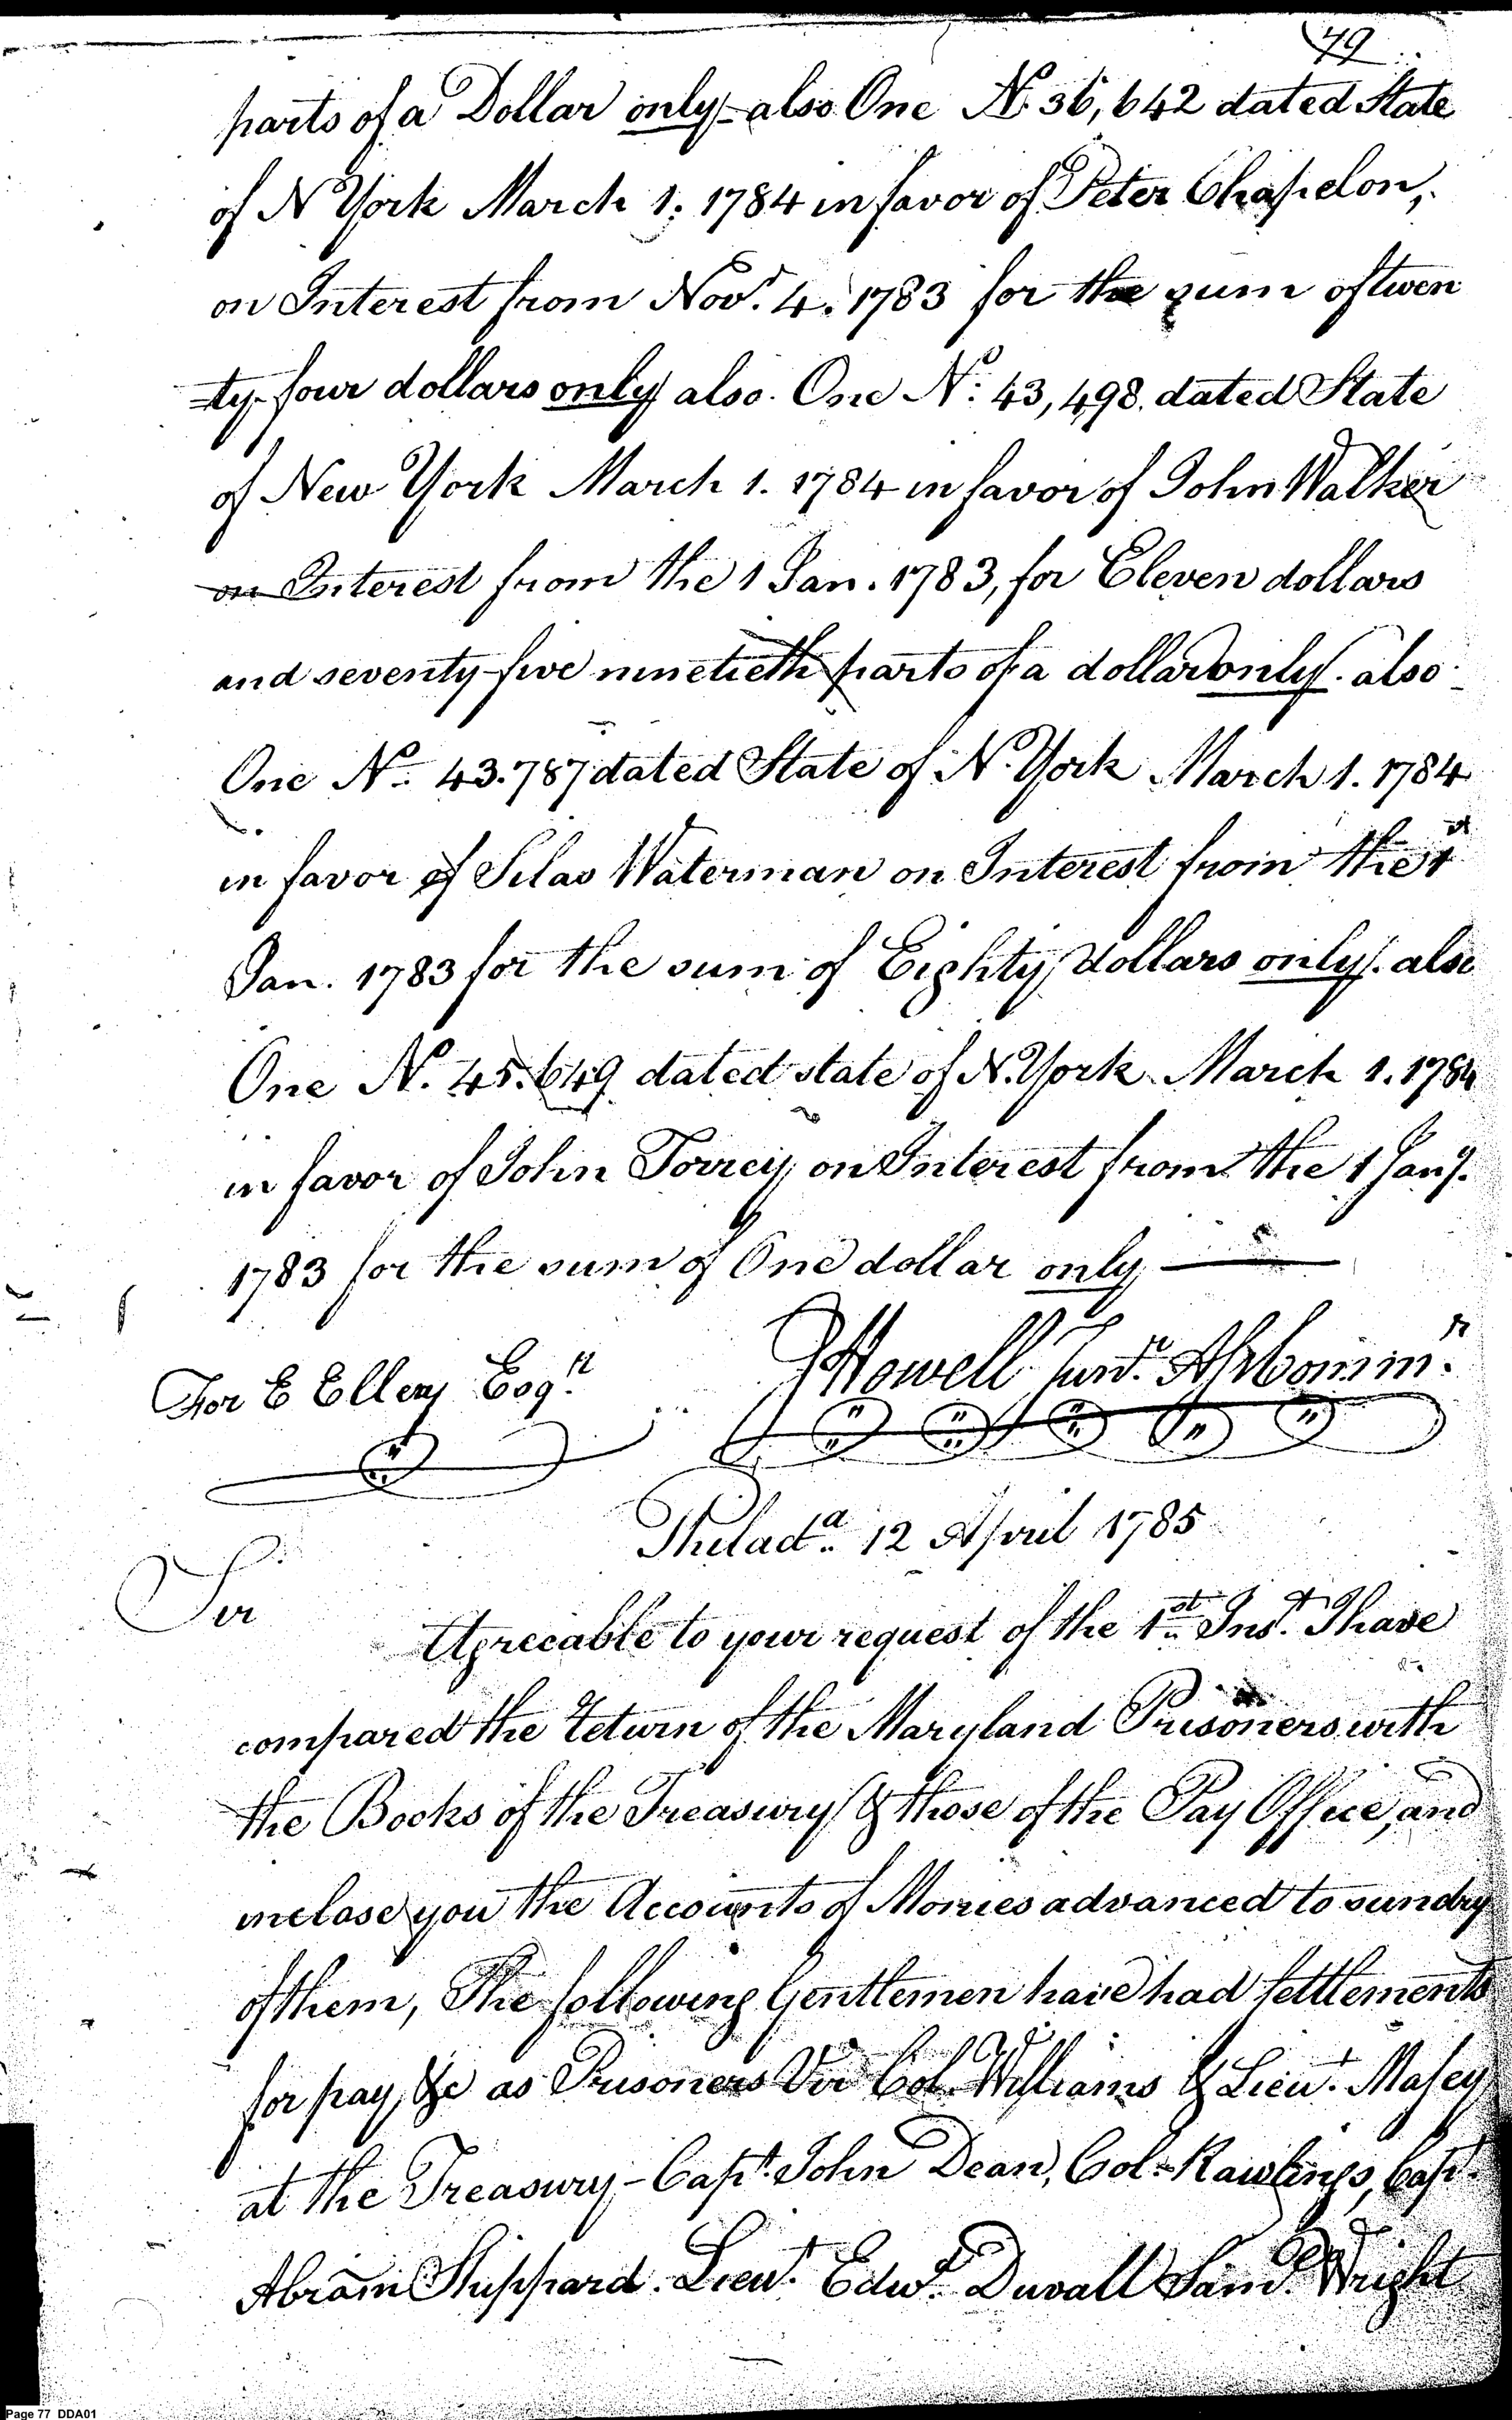 79
parts of a Dollar only - also One No. 36,642 dated State
of N York March 1: 1784 in favor of Peter Chapelon,
on Interest from Novr. 4. 1783 for the sum of twen
=ty-four dollars only also. One No: 43,498. dated State
of New York March 1. 1784 in favor of John Walker
on Interest from the 1 Jan. 1783, for Eleven dollars
and seventy-five ninetieth parts of a dollar only. also
One No. 43.787 dated State of N. York March 1. 1784
in favor of Silas Waterman on Interest from the 1st
Jan. 1783 for the sum of Eighty dollars only. also
One No. 45.649 dated state of N. York March 1. 1784
in favor of John Torrey on Interest from the 1 Jany.
1783 for the sum of One dollar only
For E Ellery Esqr. J Howell Junr. Ast Commr.
Philada. 12 April 1785
Sir
Agreeable to your request of the 1st Inst. I have
compared the Return of the Maryland Prisoners with
the Books of the Treasury & those of the Pay Office, and
inclose you the Accounts of Monies advanced to sundry
of them, The following Gentlemen have had settlements
for pay, &c as Prisoners Viz Col. Williams & Lieut. Masey
at the Treasury - Capt. John Dean, Col. Rawlings, Capt.
Abram Shippard. Lieut. Edwd. Duvall Saml. Wright
Page 77 DDA01